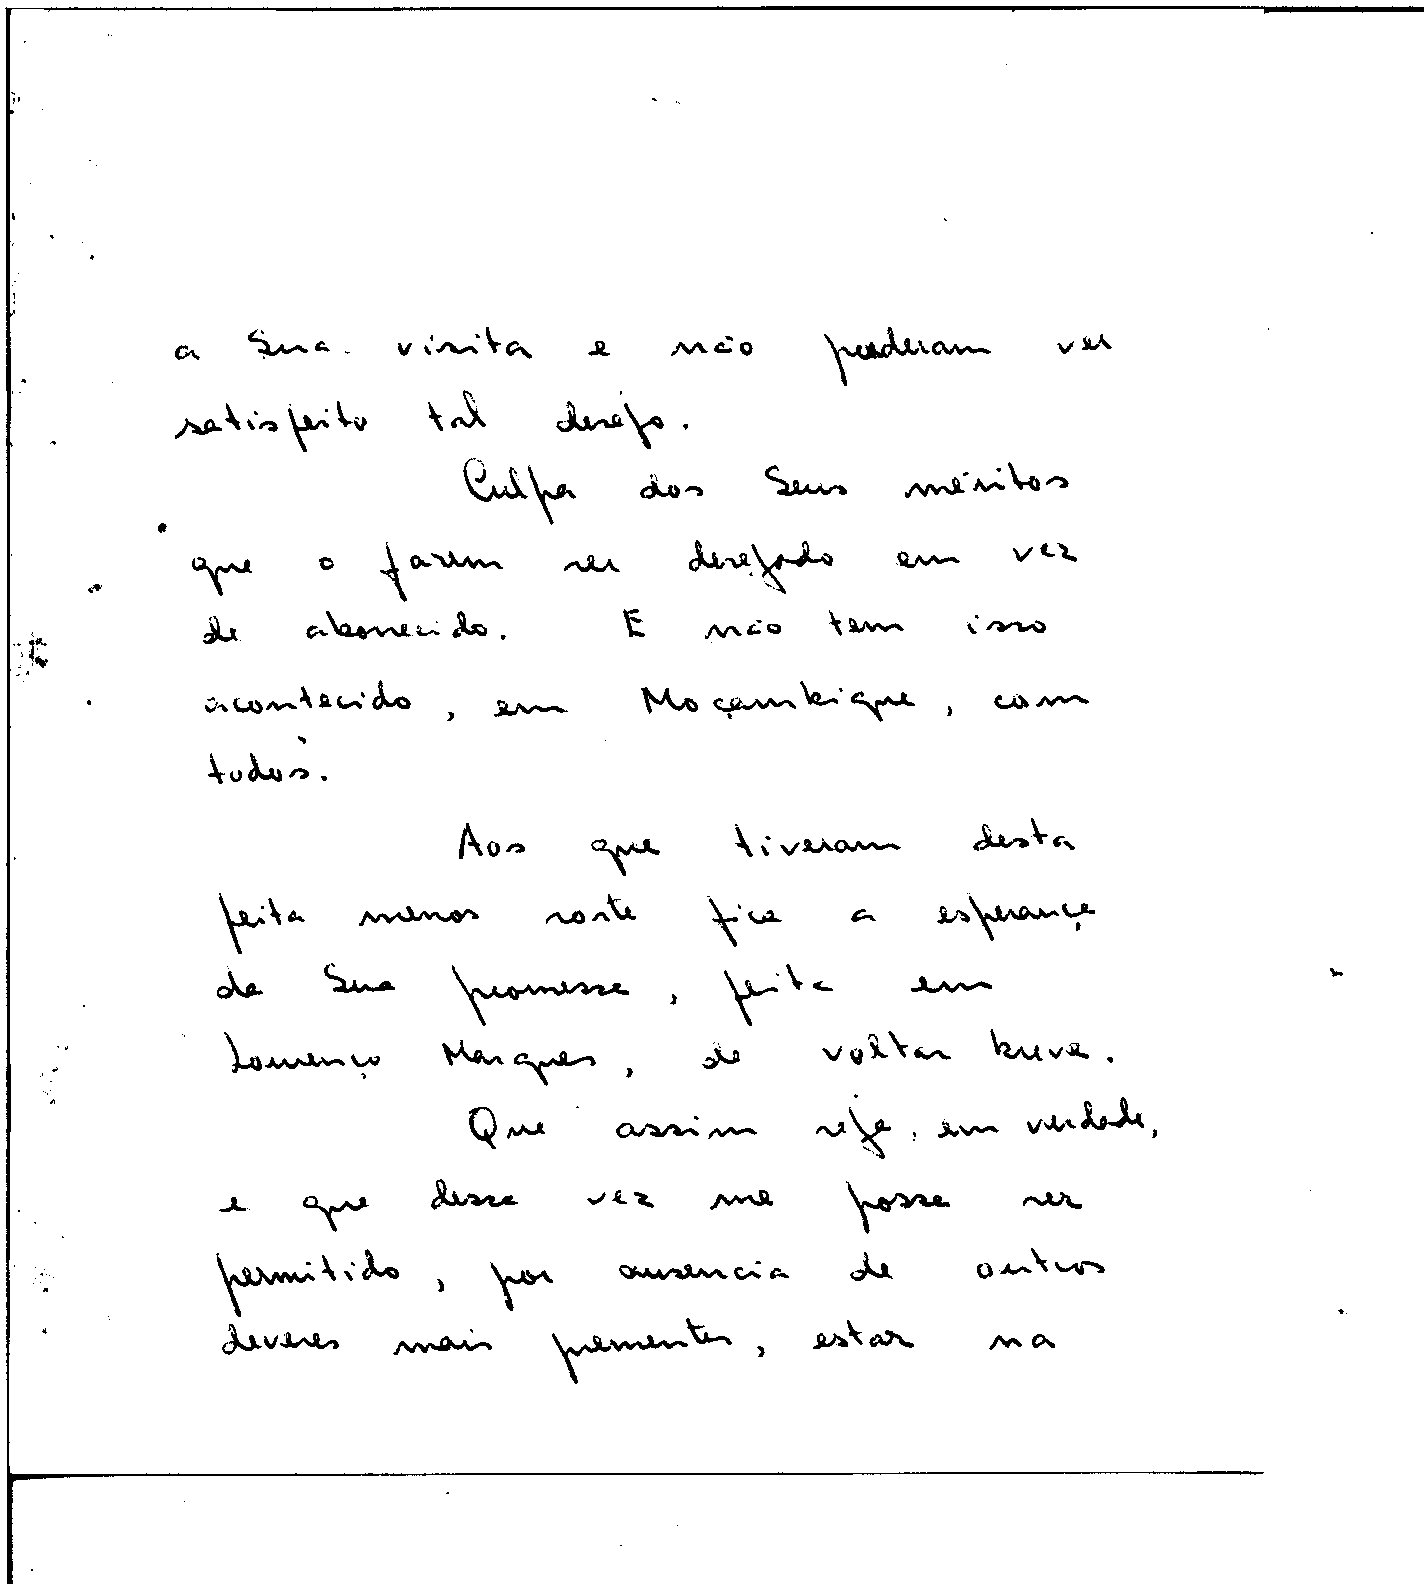 a Sua visita e não puderam ver
satisfeito tal desejo.
Culpa dos Seus méritos
que o fazem ser desejado em vez
de aborrecido. E não tem isso
acontecido, em Moçambique, com
todos.
Aos que tiveram desta
feita menos sorte fica a esperança
da Sua promessa, feita em
Lourenço Marques, de voltar breve.
Que assim seja, em verdade,
e que dessa vez me possa ser
permitido, por ausencia de outros
deveres mais prementes, estar na